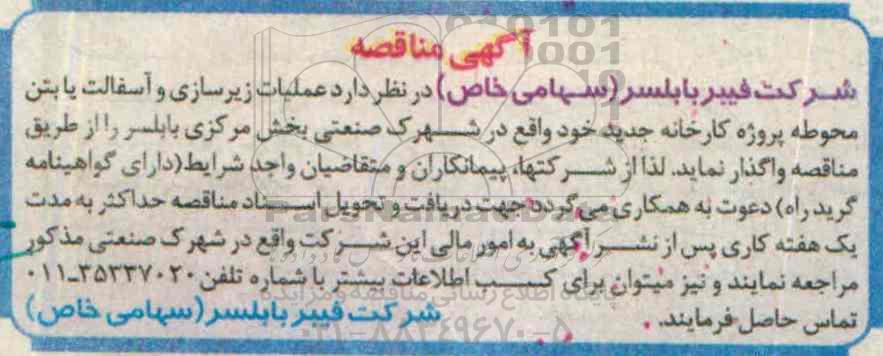 آگهی مناقصه
شرکت فیبر بابلسر (سهامی خاص) در نظر دارد عملیات زیرسازی و آسفالت یا بتن
محوطه پروژه کارخانه جدید خود واقع در شهرک صنعتی بخش مرکزی بابلسر را از طریق
مناقصه واگذار نماید. لذا از شرکتها، پیمانکاران و متقاضیان واجد شرایط (دارای گواهینامه
گرید راه) دعوت به همکاری می گردد جهت دریافت و تحویل اسناد مناقصه حداکثر به مدت
یک هفته کاری پس از نشر آگهی به امور مالی این شرکت واقع در شهرک صنعتی مذکور
مراجعه نمایند و نیز میتوان برای کسب اطلاعات بیشتر با شماره تلفن ۳۵۲۳۷۰۲۰-۰۱۱
تماس حاصل فرمایند.
شرکت فیبر بابلسر (سهامی خاص)
پایگاه اطلاع رسانی مناقصه و مزایده
۰۲۱-۸۸۳۴۹۶۷۰-۵